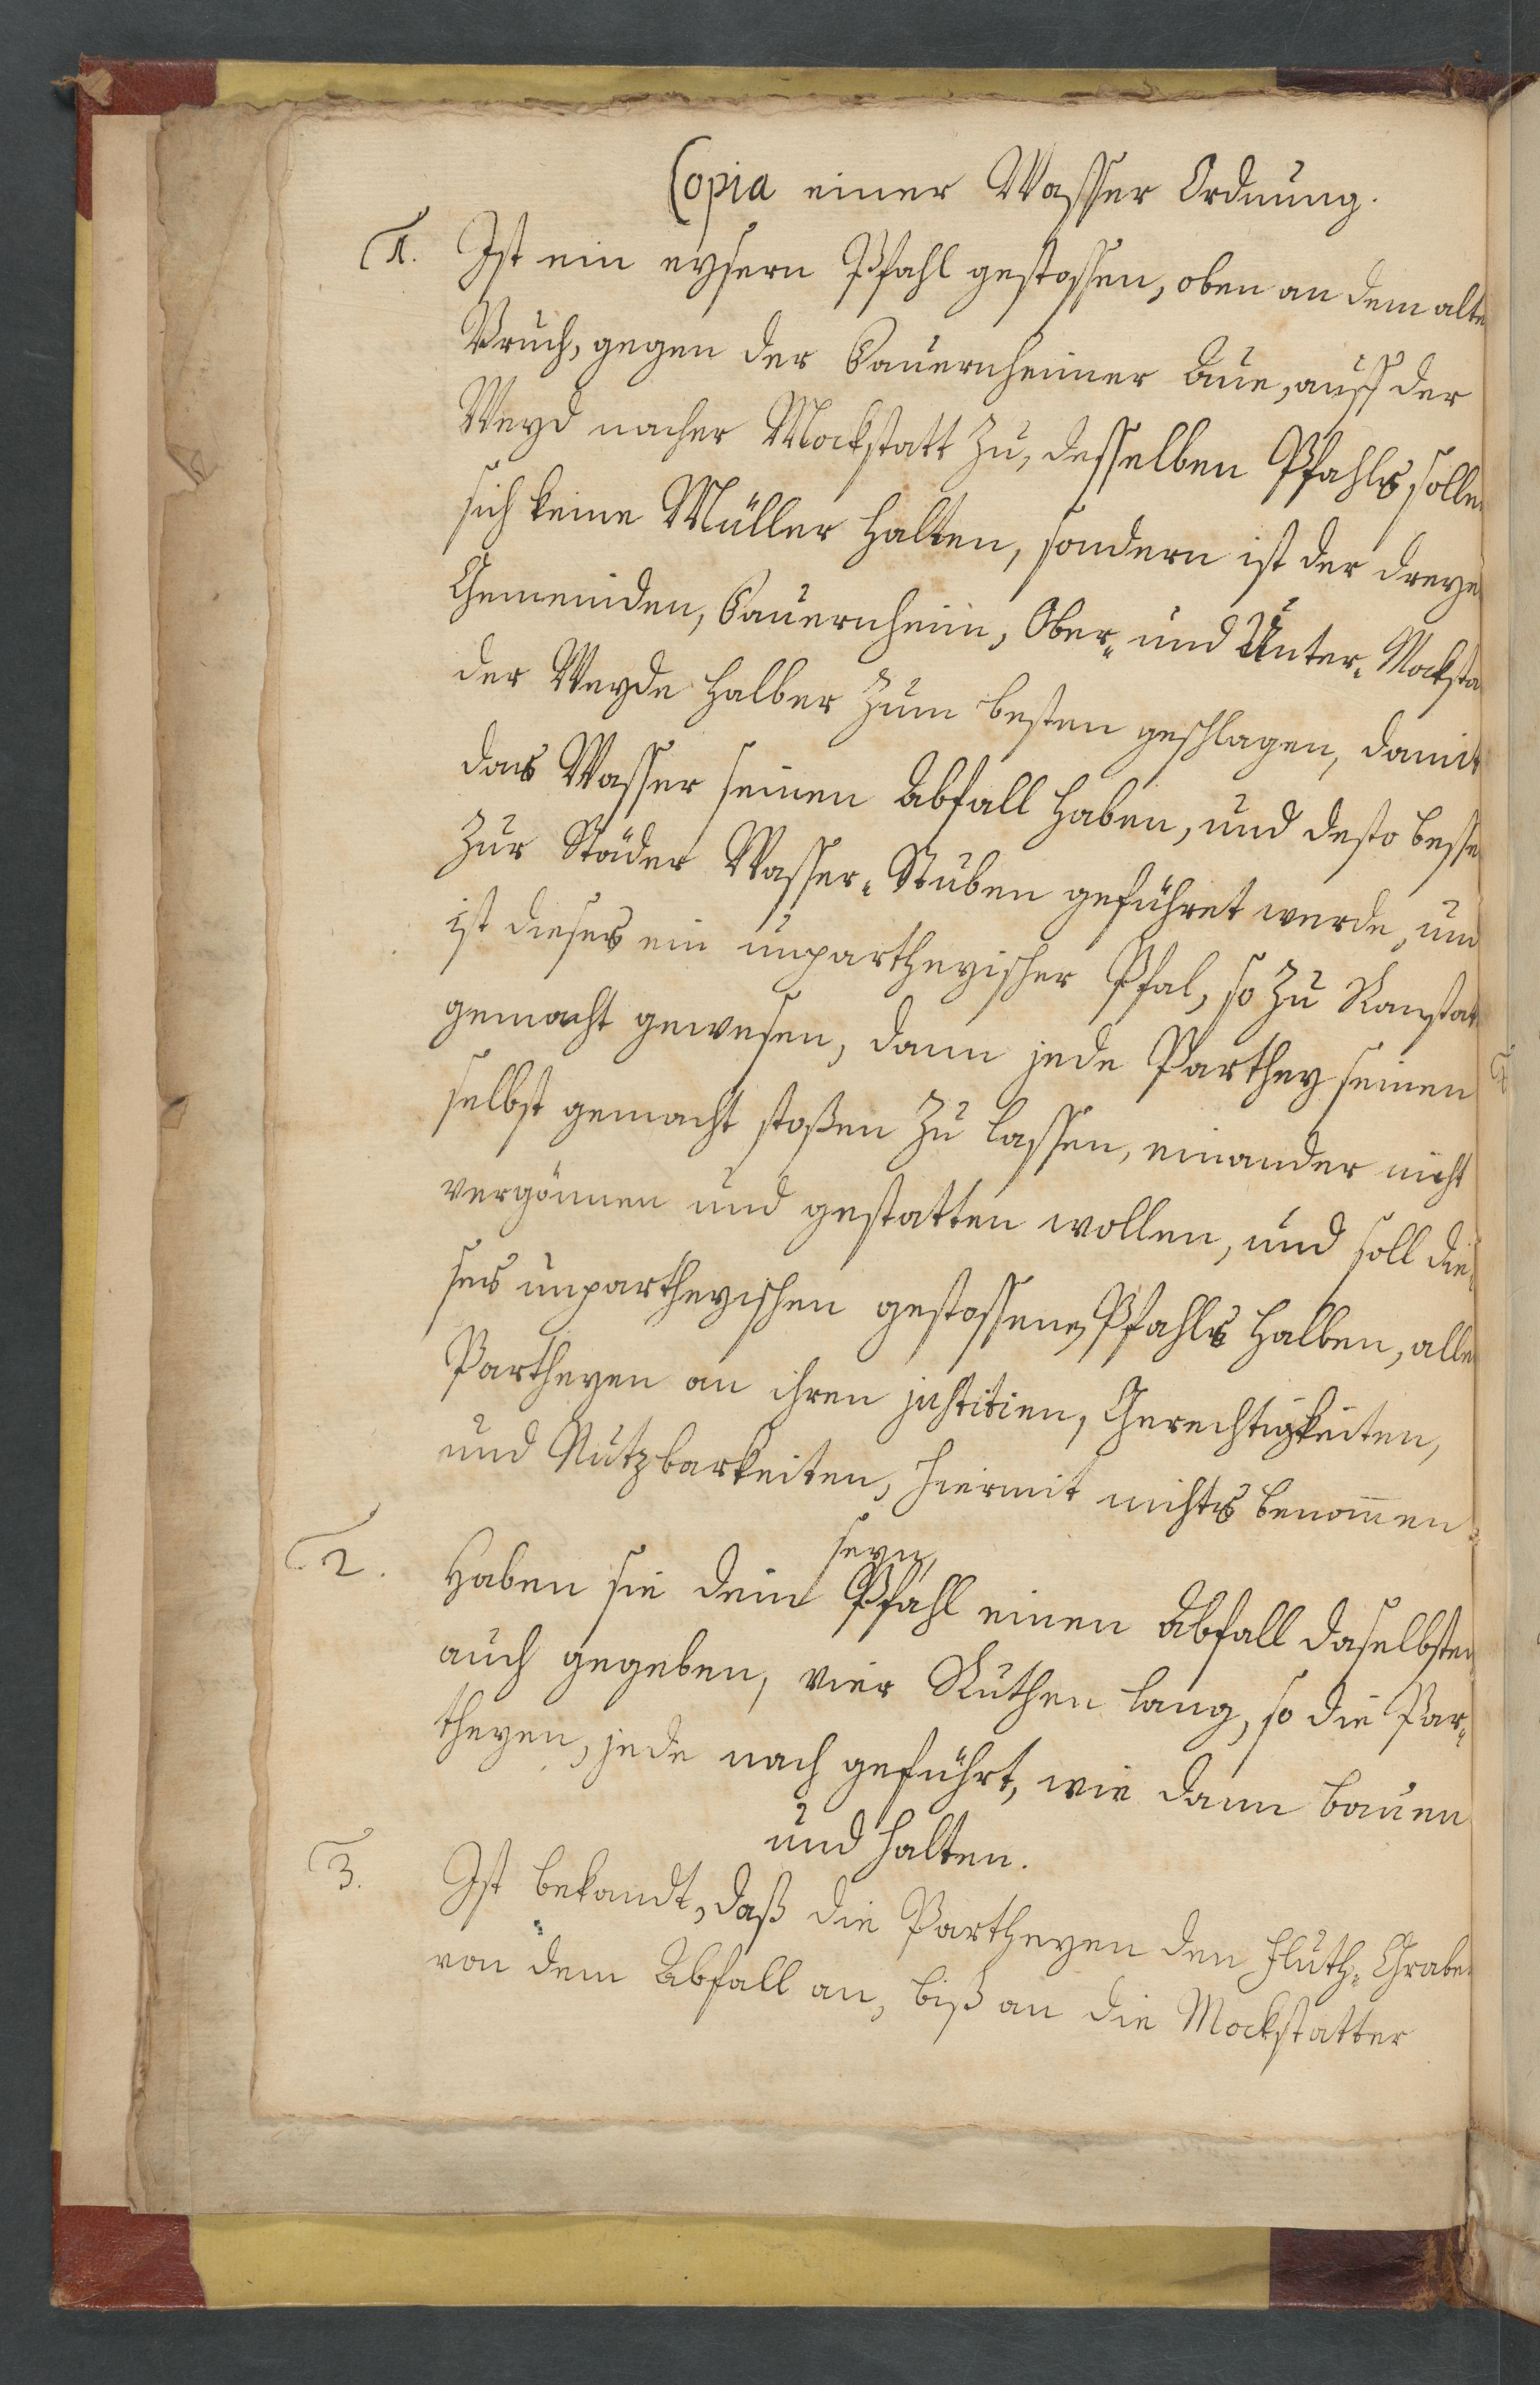 Copia einer Wasser Ordnung.
1. Ist ein eysern Pfahl gestossen, oben an dem alte
Bruch, gegen der Bauernheimer Aue, auff der
Weyd nacher Mockstatt zu, desselben Pfahls solle
sich keine Müller halten, sondern ist der dreye
Gemeinden, Bauernheim, Ober- und Unter-Mocksta
der Weyde halber zum besten geschlagen, damit
das Wasser seinen Abfall haben, und desto besse
zur Städer Wasser-Stuben geführet werde, un
ist dieses ein unpartheyischer Pfal, so zu Ranstat
gemacht gewesen, dann jede Parthey seinen
selbst gemacht stoßen zu lassen, einander nicht
vergönnen und gestatten wollen, und soll die-
ses unpartheyischen gestossenen Pfahls halben, alle
Partheyen an ihren justitien, Gerechtigkeiten,
und Nutzbarkeiten, hiermit nichts benom̄en
seyn,
2. Haben sie dem Pfahl einen Abfall daselbsten
auch gegeben, vier Ruthen lang, so die Par-
theyen, jede nach geführt, wie dann bauen
und halten.
3. Ist bekandt, daß die Partheyen den Fluth-Grabe
von dem Abfall an, biß an die Mockstatter